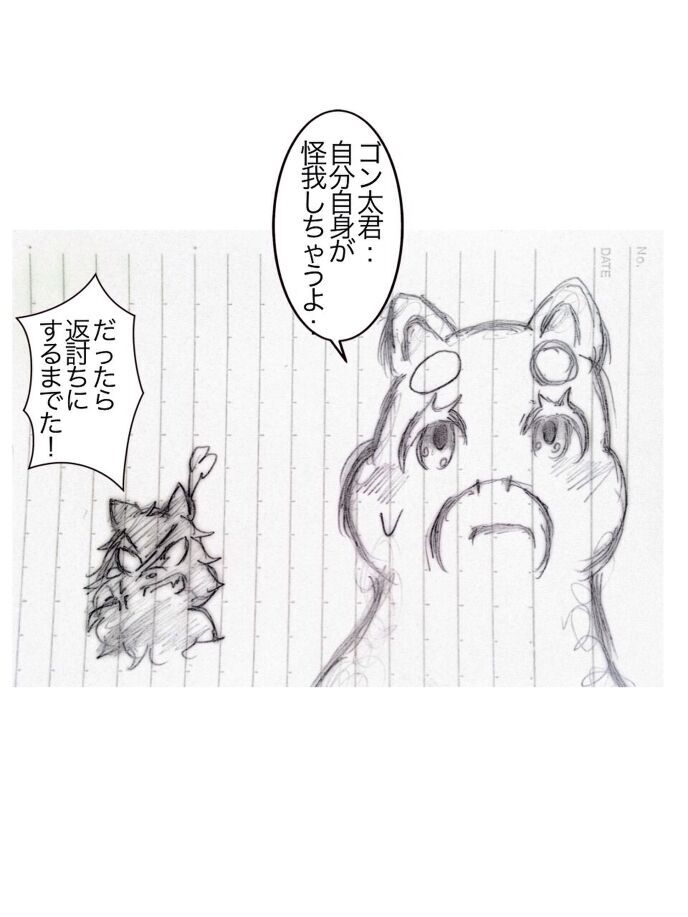 ゴン太君：
自分自身が
怪我しちゃうよ．
だったら
返討ちに
するまでた！
No.
DATE